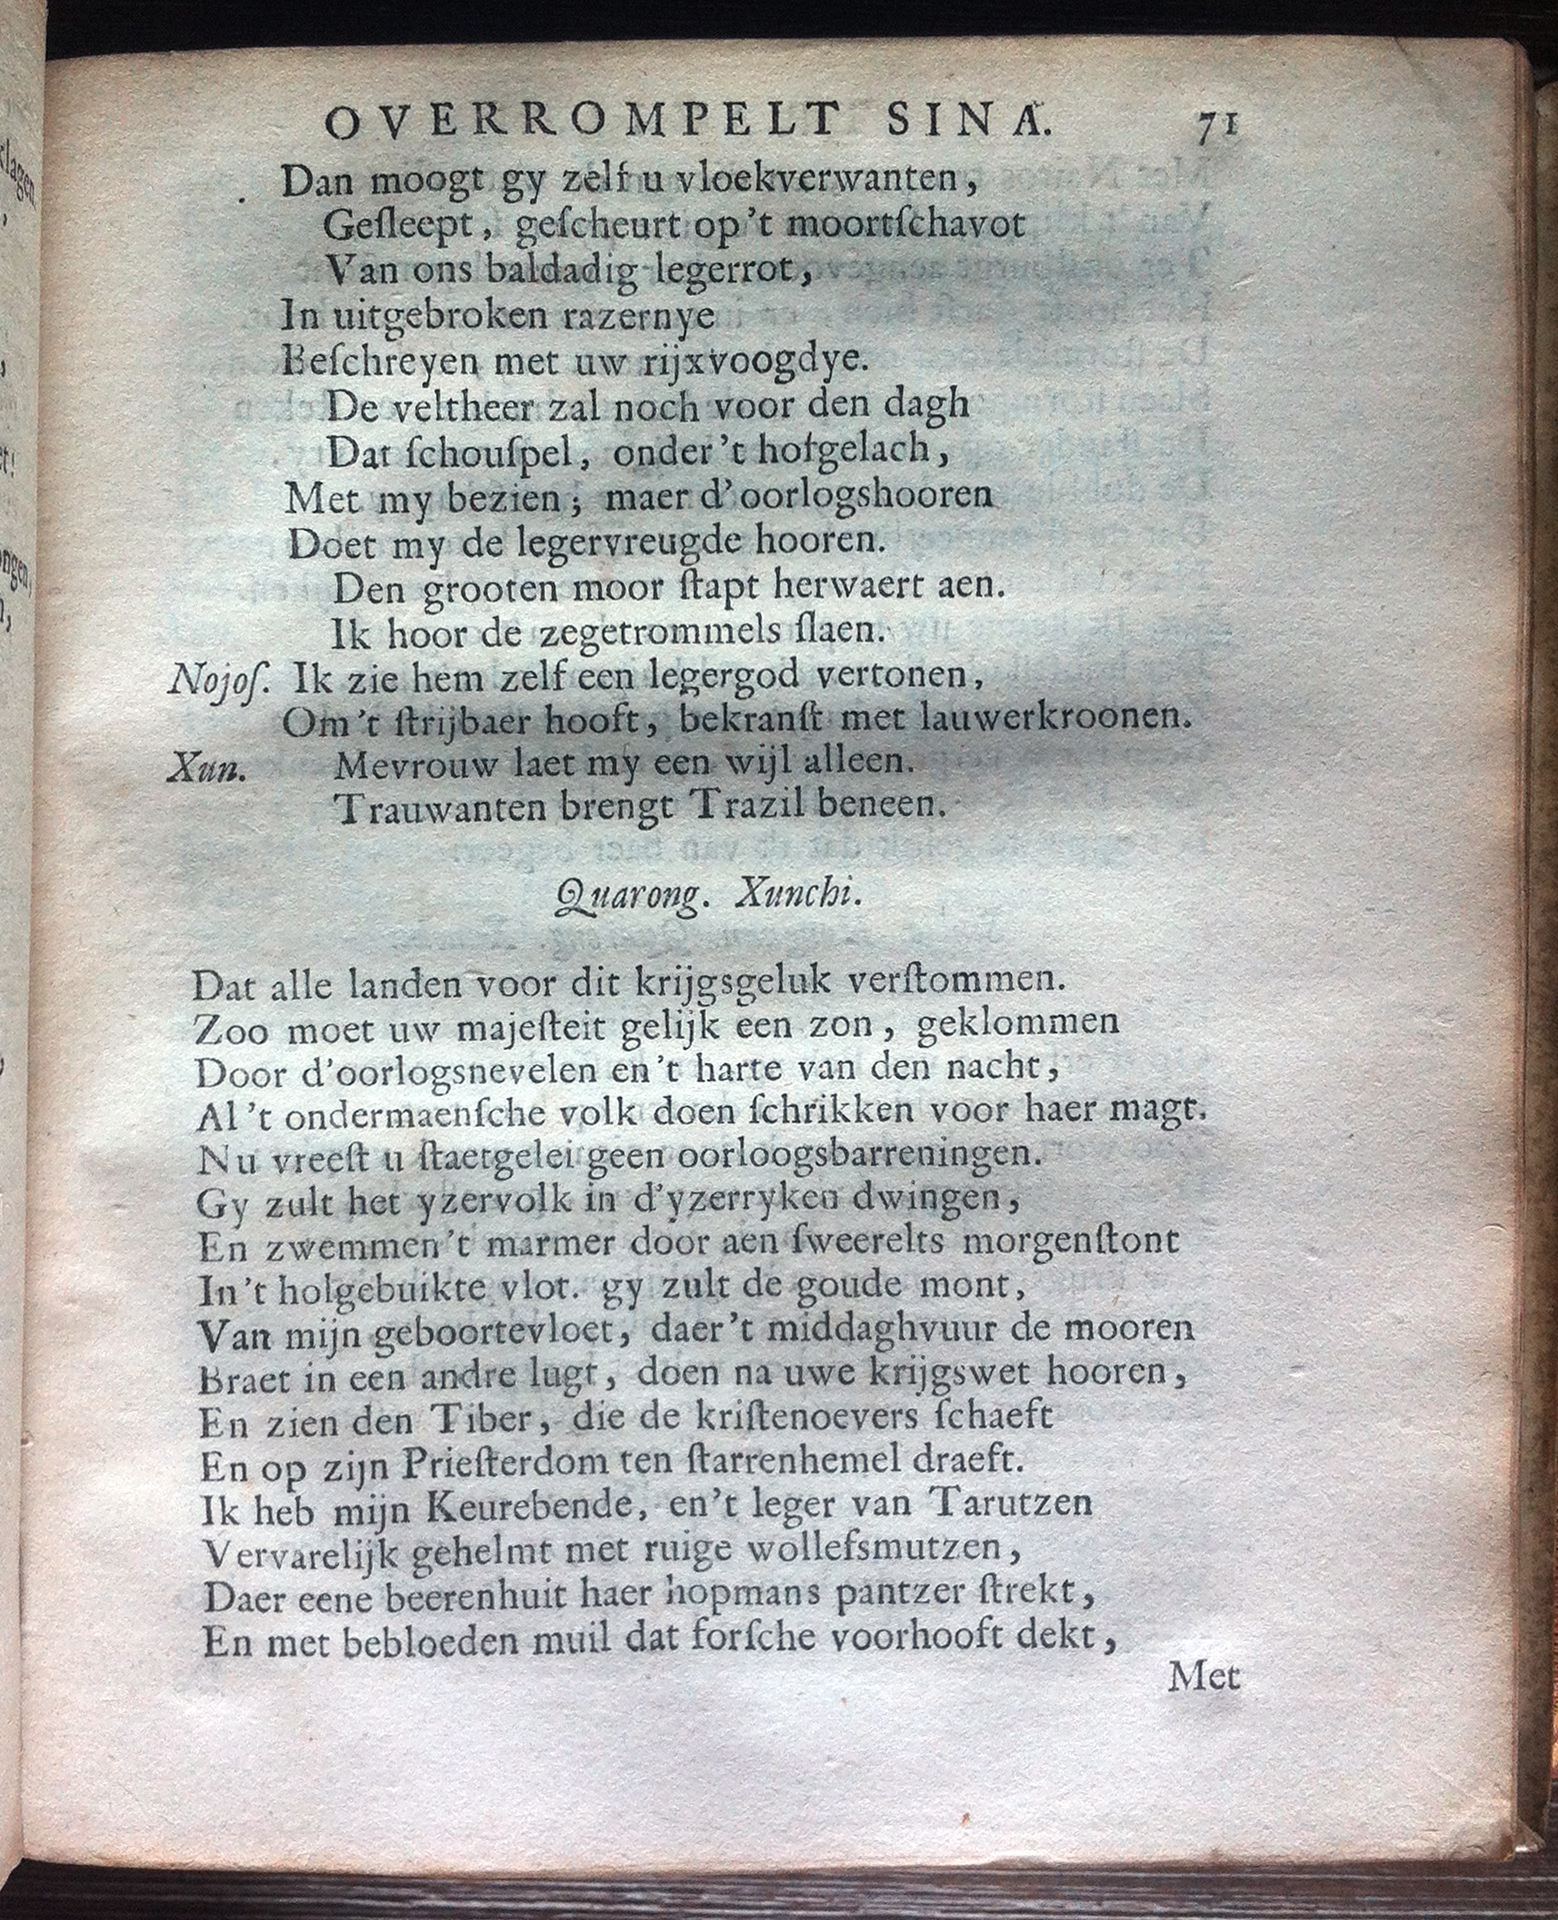 OVERROMPELT SINA. 71
Dan moogt gy zelf u vloekverwanten,
Geſleept, geſcheurt op't moortſchavot
Van ons baldadig legerrot,
In uitgebroken razernye
Beſchreyen met uw rijxvoogdye.
De veltheer zal noch voor den dagh
Dat ſchouſpel, onder 't hofgelach,
Met my bezien; maer d'oorlogshooren
Doet my de legervreugde hooren.
Den grooten moor ſtapt herwaert aen.
Ik hoor de zegetrommels ſlaen.
Nojoſ. Ik zie hem zelf een legergod vertonen,
Om 't ſtrijbaer hooft, bekranſt met lauwerkroonen.
Xun. Mevrouw laet my een wijl alleen.
Trauwanten brengt Trazil beneen.
Quarong. Xunchi.
Dat alle landen voor dit krijgsgeluk verſtommen.
Zoo moet uw majeſteit gelijk een zon, geklommen
Door d'oorlogsnevelen en 't harte van den nacht,
Al 't ondermaenſche volk doen ſchrikken voor haer magt.
Nu vreeſt u ſtaetgelei geen oorloogsbarreningen.
Gy zult het yzervolk in d'yzerryken dwingen,
En zwemmen 't marmer door aen ſweerelts morgenſtont
In 't holgebuikte vlot. gy zult de goude mont,
Van mijn geboortevloet, daer 't middaghvuur de mooren
Braet in een andre lugt, doen na uwe krijgswet hooren,
En zien den Tiber, die de kriſtenoevers ſchaeft
En op zijn Prieſterdom ten ſtarrenhemel draeft.
Ik heb mijn Keurebende, en 't leger van Tarutzen
Vervarelijk gehelmt met ruige wollefsmutzen,
Daer eene beerenhuit haer hopmans pantzer ſtrekt,
En met bebloeden muil dat forſche voorhooft dekt,
Met